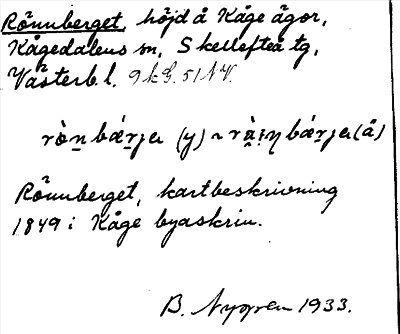 Rönnberget, höjd å Kåge ägor,
Kågedalens sn, Skellefteå tg,
Västerb. l. 9kG. 51 NV.
rò̱n bǽrjer (y) ~ rä̀i̱ŋ bǽrjer (ä)
Rönnberget, kartbeskrivning
1849 i Kåge byaskrin.
B. Nygren 1933.